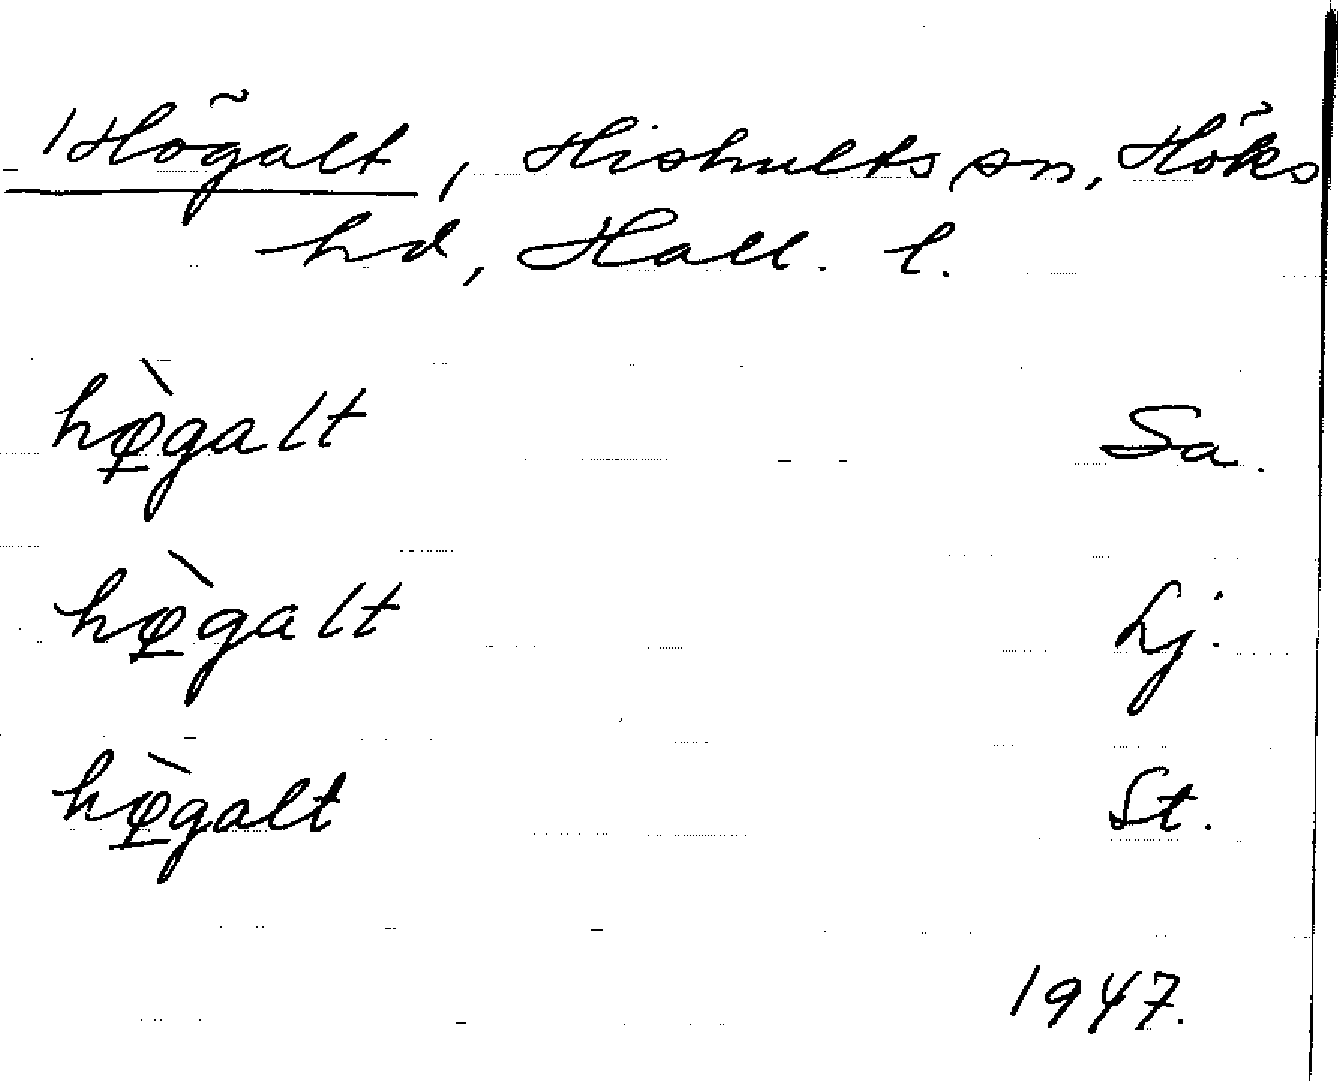 Högalt, Hishults sn, Höks
hd, Hall. l.
hø̱̀galt Sa.
hø̱̀galt Lj.
hø̱̀galt St.
1947.